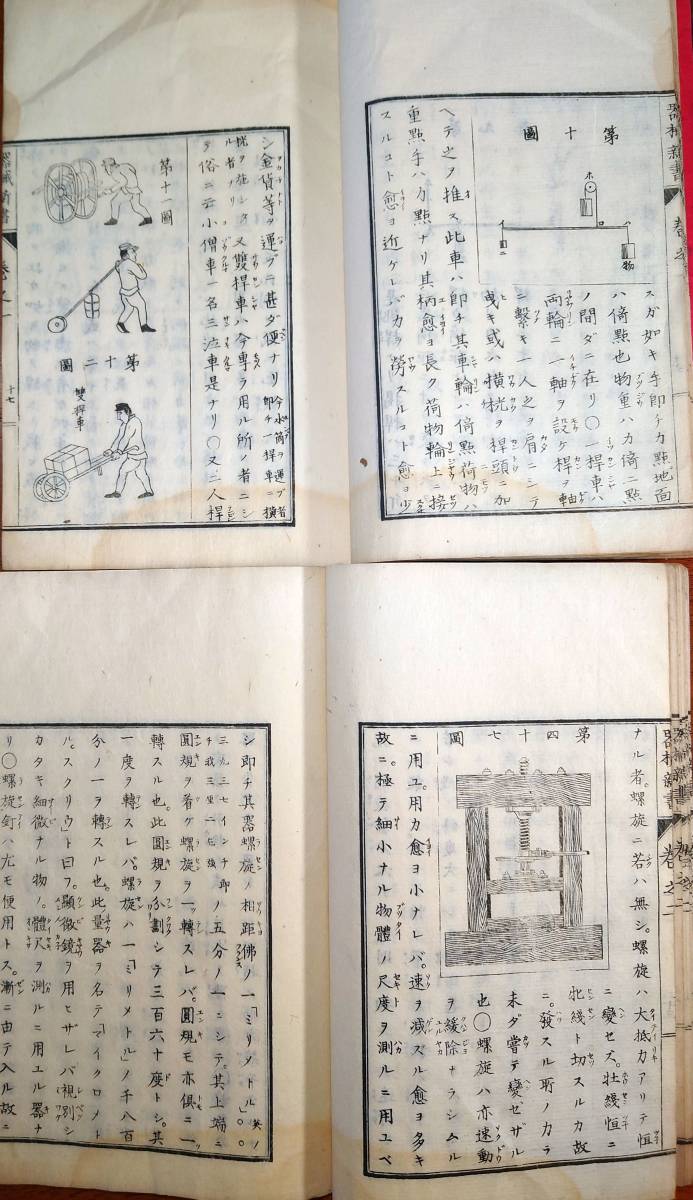 器械新書 巻之一
第十圖
ホ
ハ
ロ
物
ニ
スガ如キ手即チ力點地面
ハ倚點也物重ハ力倚二點
ノ間ダニ在リ〇一桿車ハ
両輪ニ一軸ヲ設ケ桿ヲ軸
ニ繫キ一人之ヲ肩ニシテ
曳キ或ハ横桄ヲ桿頭ニ加
ヘテ之ヲ推ス此車ハ即チ其車輪ハ倚點荷物ハ
重點手ハ力點ナリ其柄愈ヨ長ク荷物輪上ニ接
スルコト愈ヨ近ケレバ力ヲ勞スルコト愈ヨ少
シ金貨等ヲ運ブニ甚ダ便ナリ今水筒ヲ運ブ者即チ一桿車ニ横
桄ヲ施シタル者ナリ又雙桿車ハ今専ラ用ル所ノ者ニシ
テ俗ニ云小僧車一名三泣車是ナリ〇又二人桿
第十一圖
第十二圖
雙桿車
器械新書 巻之一 十七
器械新書 巻之二
ナル者。螺旋ニ若ハ無シ。螺旋ハ大抵力アリテ恒
ニ變セズ。壮緩恒ニ
牝綫ト切スルカ故
ニ。發スル所ノカラ
未ダ嘗テ變ゼザル
也〇螺旋ハ亦速動
ヲ緩除ナラシムル
第四十七圖
ニ用ユ。用力愈ヨ小ナレバ。速ヲ減ズル愈ヨ多キ
故ニ。極テ細小ナル物體ノ尺度ヲ測ルニ用ユベ
シ即チ其器螺旋ノ相距佛ノ一「ミリメトル」
三九三七インチ即チ我三里二毛強ノ五分ノ一ニシテ。其上端ニ
圓規ヲ着ケ螺旋ヲ一轉スレバ。圓規モ亦俱ニ一
轉スル也。此圓規ヲ分劃シテ三百六十度トシ。其
一度ヲ轉スレバ。螺旋ハ一「ミリメトル」ノ千八百
分ノ一ヲ轉スル也。此量器ヲ名テ「マイクロメト
ル。スクリウ」ト曰フ。顯微鏡ヲ用ヒザレバ視別シ
カタキ細微ナル物ノ。體尺ヲ測ルニ用エル器ナ
リ〇螺旋釘ハ尤モ便用トス。漸ニ由テ入ル故ニ